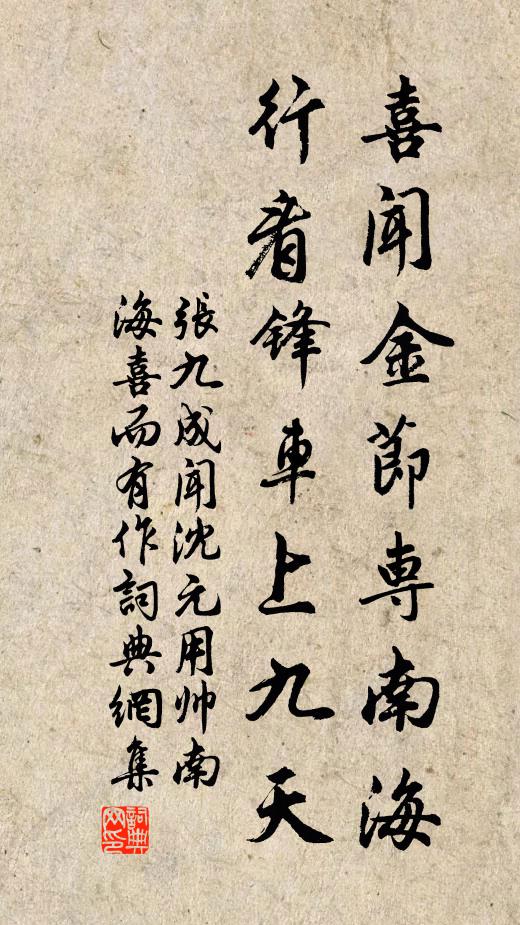 喜聞金節専南海
行看鋒車上九天
張九成聞沈元用帅南
海喜而有作詞典網集
詞典网印